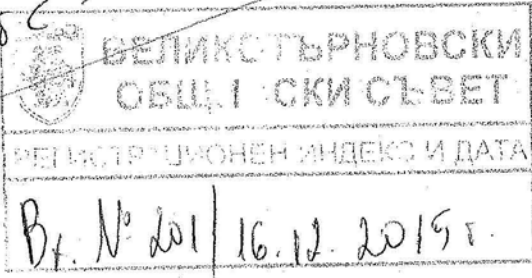 ВЕЛИКОТЪРНОВСКИ
ОБЩИНСКИ СЪВЕТ
РЕГИСТРАЦИОНЕН ИНДЕКС И ДАТА
Вх. № 201/16.12.2015 г.